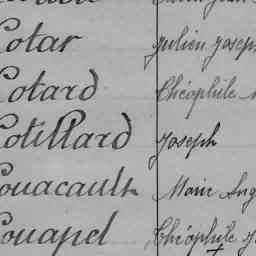 Cotar Julien Joseph
Cotard Théophile
Cotillard Joseph
Couacault Marie Ang
Couapel Théophile J